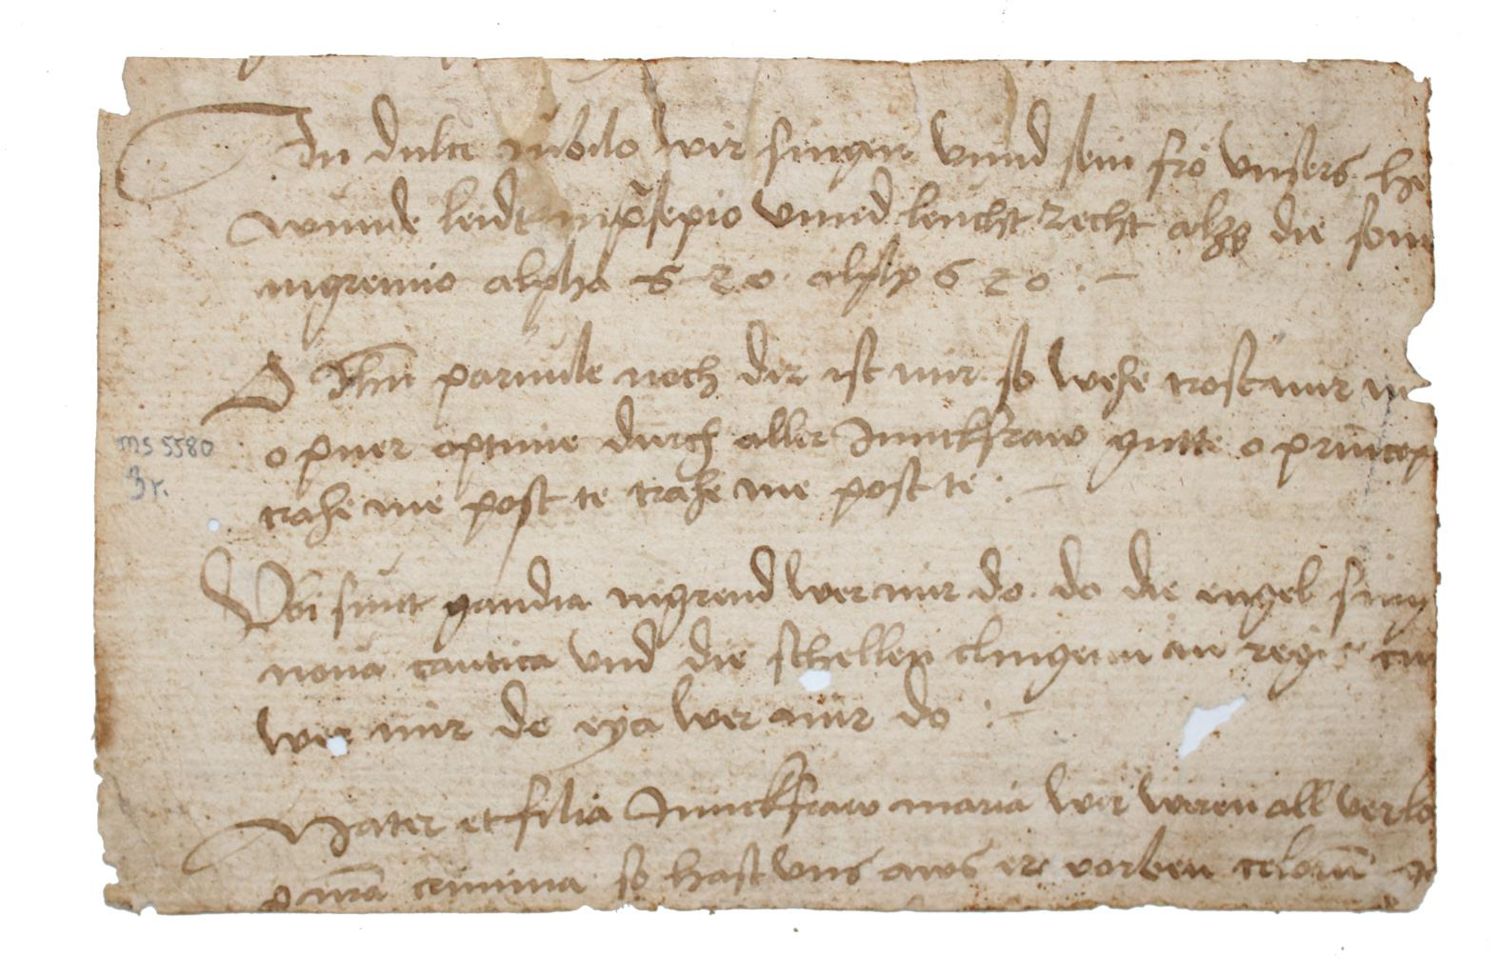 In dulci iubilo wir singen vnnd sein fro vnsers he
wunne leidt in p̄sepio vnnd leucht recht alß die sonn
ingremio alpha es et o alpha es et o :-
O Ihū paruule noch dir ist mir so wehe trost mir m
o puer optime durch aller Junckfraw gutte o princep
trahe me post te trahe me post te :-
MS 5580
3r.
Vbi sunt gaudia nigrend wer mir do do die engel sing
noua cantica vnd die schellen clingenn in regis cu
wer mir do eya wer mir do :-
Mater et filia Junckfraw maria wir weren all verlo
crimina so hast vns aws er vorben celorū